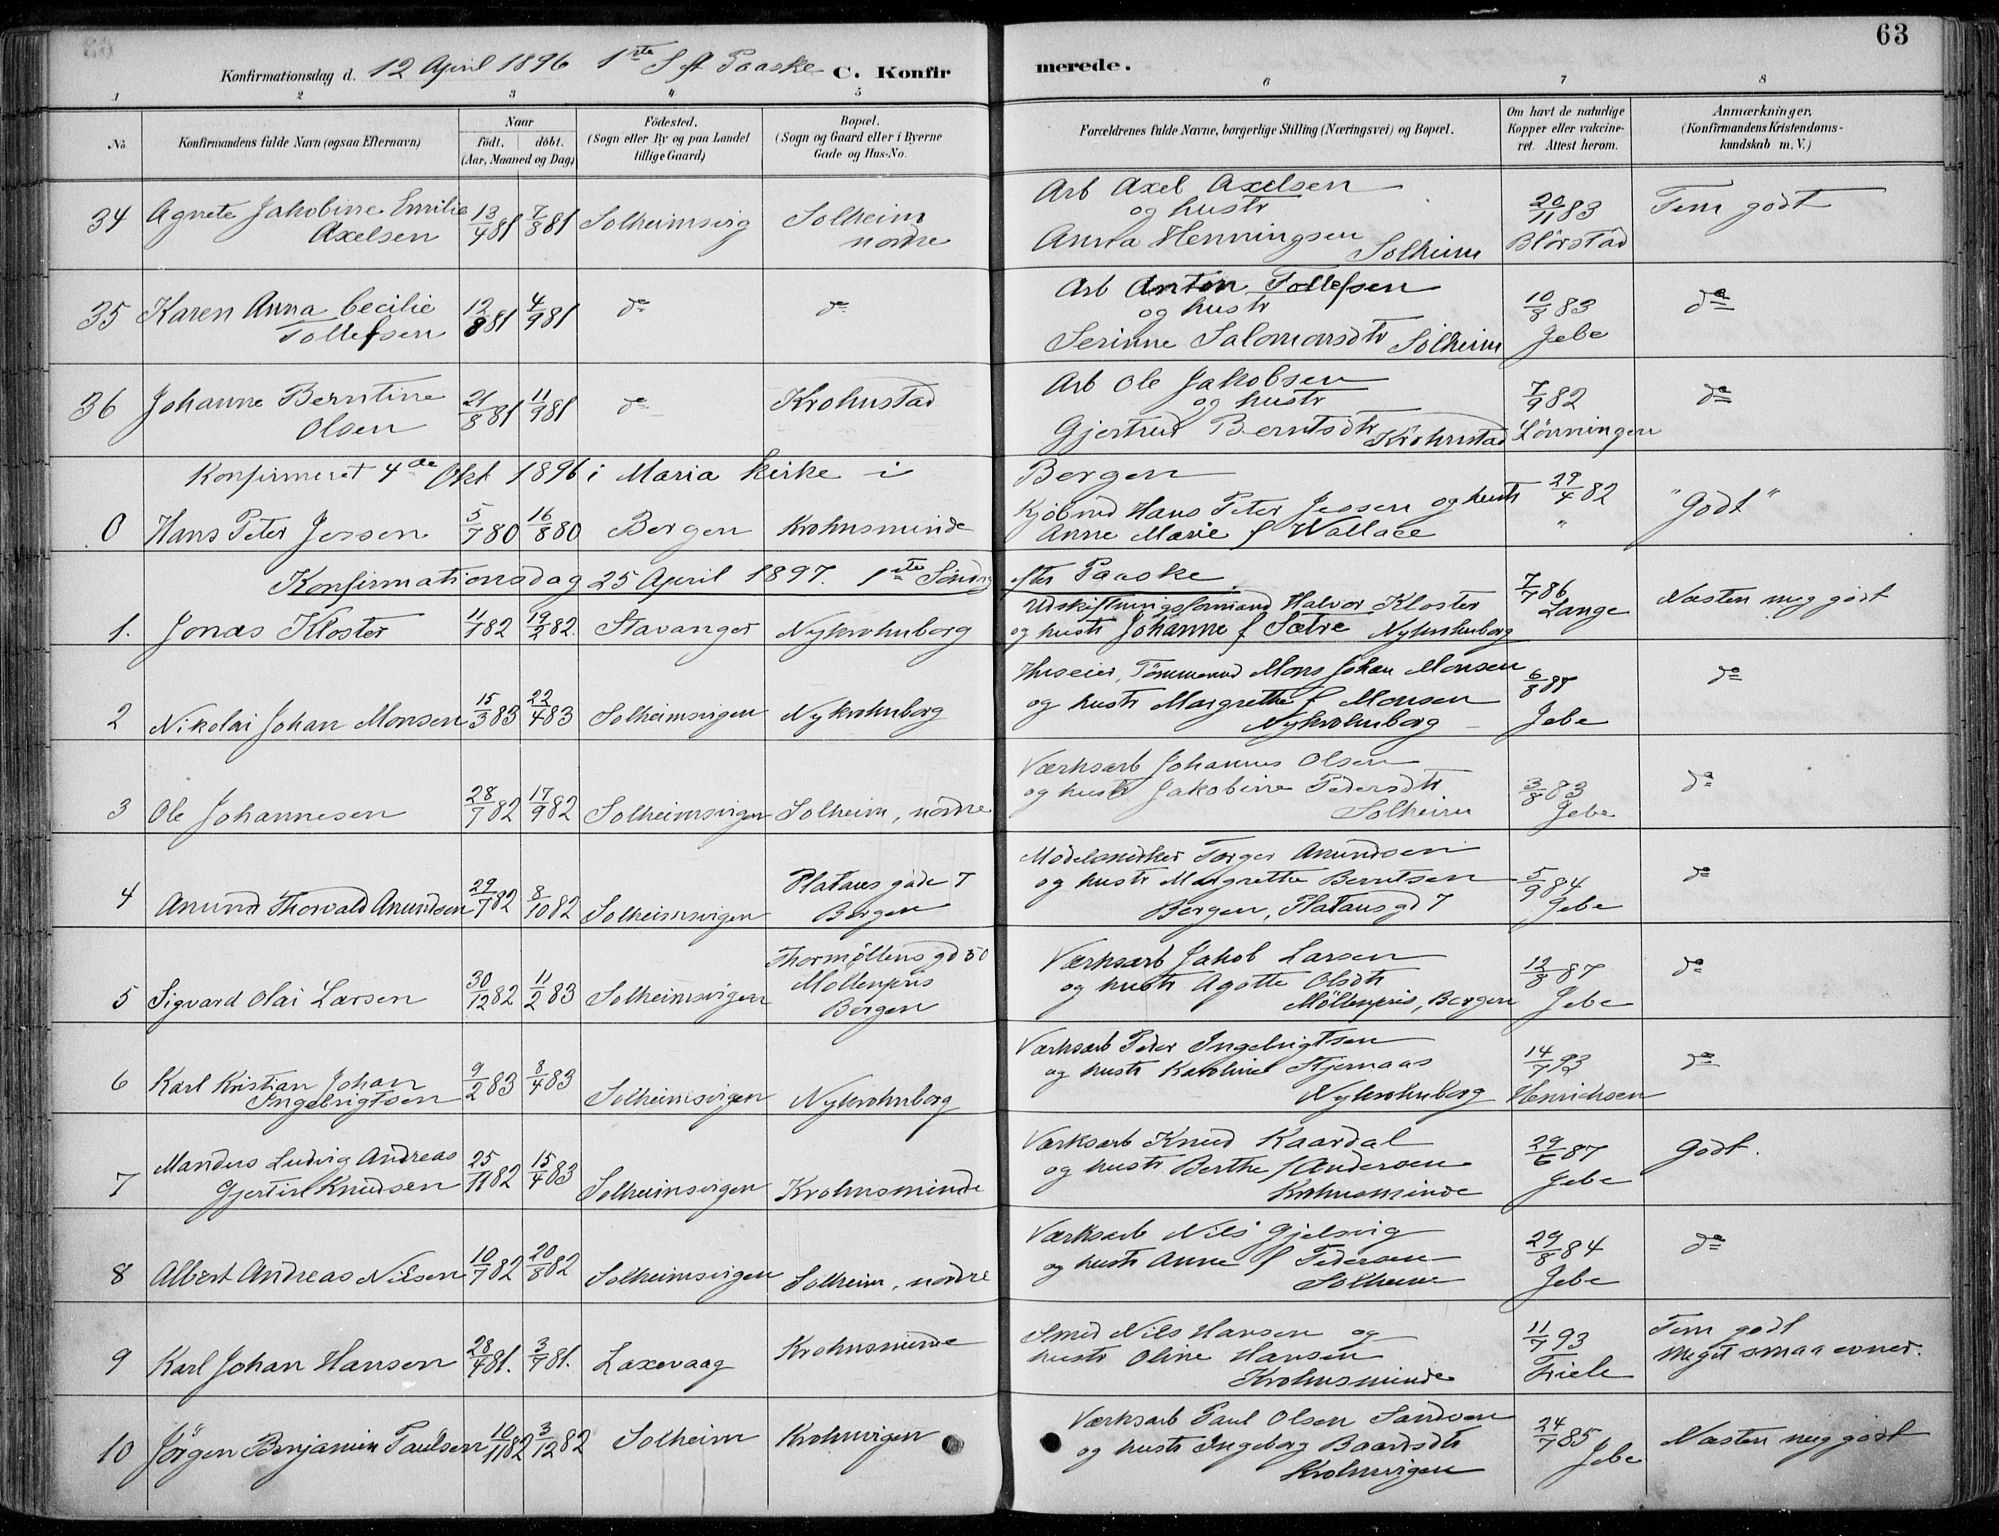 63
Konfirmationsdag d. 12 April 1896 1ste S. eft Paaske C. Konfir merede.
1 2 3 4 5 6 7 8
No. Konfirmandens fulde Navn (ogsaa Efternavn) Naar født. døbt. (Aar, Maaned og Dag) Fødested. (Sogn eller By og paa Landet tillige Gaard) Bopæl. (Sogn og Gaard eller i Byerne Gade og Hus-No. Forældrenes fulde Navne, borgerlige Stilling (Næringsvei) og Bopæl. Om havt de naturlige Kopper eller vakcineret. Attest herom. Anmærkninger, (Konfirmandens Kristendomskundskab m. V.)
34 Agnete Jakobine Emilie Axelsen 13/4 81 7/8 81 Solheimsvig Solheim nordre Arb Axel Axelsen og hustr Anna Henningsen Solheim 20/11 83 Blørstad Tem godt
35 Karen Anna Cecilie Tollefsen 12/8 81 4/9 81 do do Arb Anton Tollefsen og hustr Serinne Salomonsdtr Solheim 10/8 83 Jebe do
36 Johanne Berntine Olsen 21/8 81 11/9 81 do Krohnstad Arb Ole Jakobsen og hustr Gjertrud Berntsdtr Krohnstad 7/9 82 Lønningen do
Konfirmeret 4de Okt 1896 i Maria Kirke i Bergen
0 Hans Peter Jessen 5/7 80 16/8 80 Bergen Krohnsminde Kjøbmd Hans Peter Jessen og hustr Anne Marie f Wallace 29/4 82 " "Godt"
Konfirmationsdag 25 April 1897. 1ste Søndag efter Paaske
1. Jonas Kloster 11/1 82 19/2 82. Stavanger Nykrohnborg Udskiftningsformand Halvor Kloster og hustr Johanne f Sætre Nykrohnborg 7/7 86 Lange Næsten meg godt
2 Nikolai Johan Monsen 15/3 83 22/4 83 Solheimsvigen Nykrohnborg Huseier, Tømmermd Mons Johan Monsen og hustr Margrethe f Monsen Nykrohnborg 6/8 87 Jebe do
3 Ole Johannesen 28/7 82 17/9 82 Solheimsvigen Solheim, nordre Værksarb Johannes Olsen og hustr Jakobine Pedersdtr Solheim 3/8 83 Jebe do
4 Anund Thorvald Anundsen 29/7 82 8/10 82 Solheimsvigen Platous gade 7 Bergen Modelsnedker Torger Anundsen og hustr Margrethe Berntsen Bergen, Platous gd 7 5/9 84 Jebe do
5 Sigvard Olai Larsen 30/12 82 11/2 83 Solheimsvigen Thormøhlens gd 50 Møllenpris Bergen Værksarb Jakob Larsen og hustr Agotte Olsdtr Møllenpris, Bergen 12/8 87 Jebe do
6 Karl Kristian Johan Ingebrigtsen 9/2 83 8/4 83 Solheimsvigen Nykrohnborg Værksarb Peder Ingebrigtsen og hustr Karoline Stjernaas Nykrohnborg 14/7 93 Henrichsen do
7 Mandus Ludvig Andreas Gjertin Knudsen 25/11 82 15/4 83 Solheimsvigen Krohnsminde Værksarb Knud Kaardal og hustr Berthe f Andersen Krohnsminde 29/6 87 Jebe Godt.
8 Albert Andreas Nilsen 10/7 82 20/8 82 Solheimsvigen Solheim, nordre Værksarb Nils Gjelsvig og hustr Anne f Pedersen Solheim 29/8 84 Jebe do
9 Karl Johan Hansen 28/4 81. 3/7 81. Laxevaag Krohnsminde Smed Nils Hansen og hustr Oline Hansen Krohnsminde 11/7 93 Friele Tem godt Meget smaa evner.
10 Jörgen Benjamin Paulsen 10/11 82 3/12 82 Solheim Krohnvigen Værksarb Paul Olsen Sandven og hustr Ingeborg Baardsdtr Krohnvigen 24/7 85 Jebe Næsten meg godt